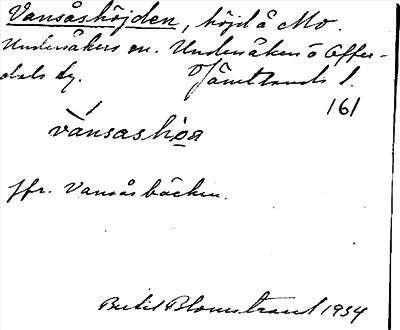 Vansåshöjden, höjd å Mo.
Undersåkers sn. Undersåkers o Offer-
dals tg. Jämtlands l.
161
vánsashöa
Jfr. Vansåsbäcken.
Bertil Blomstrand 1934